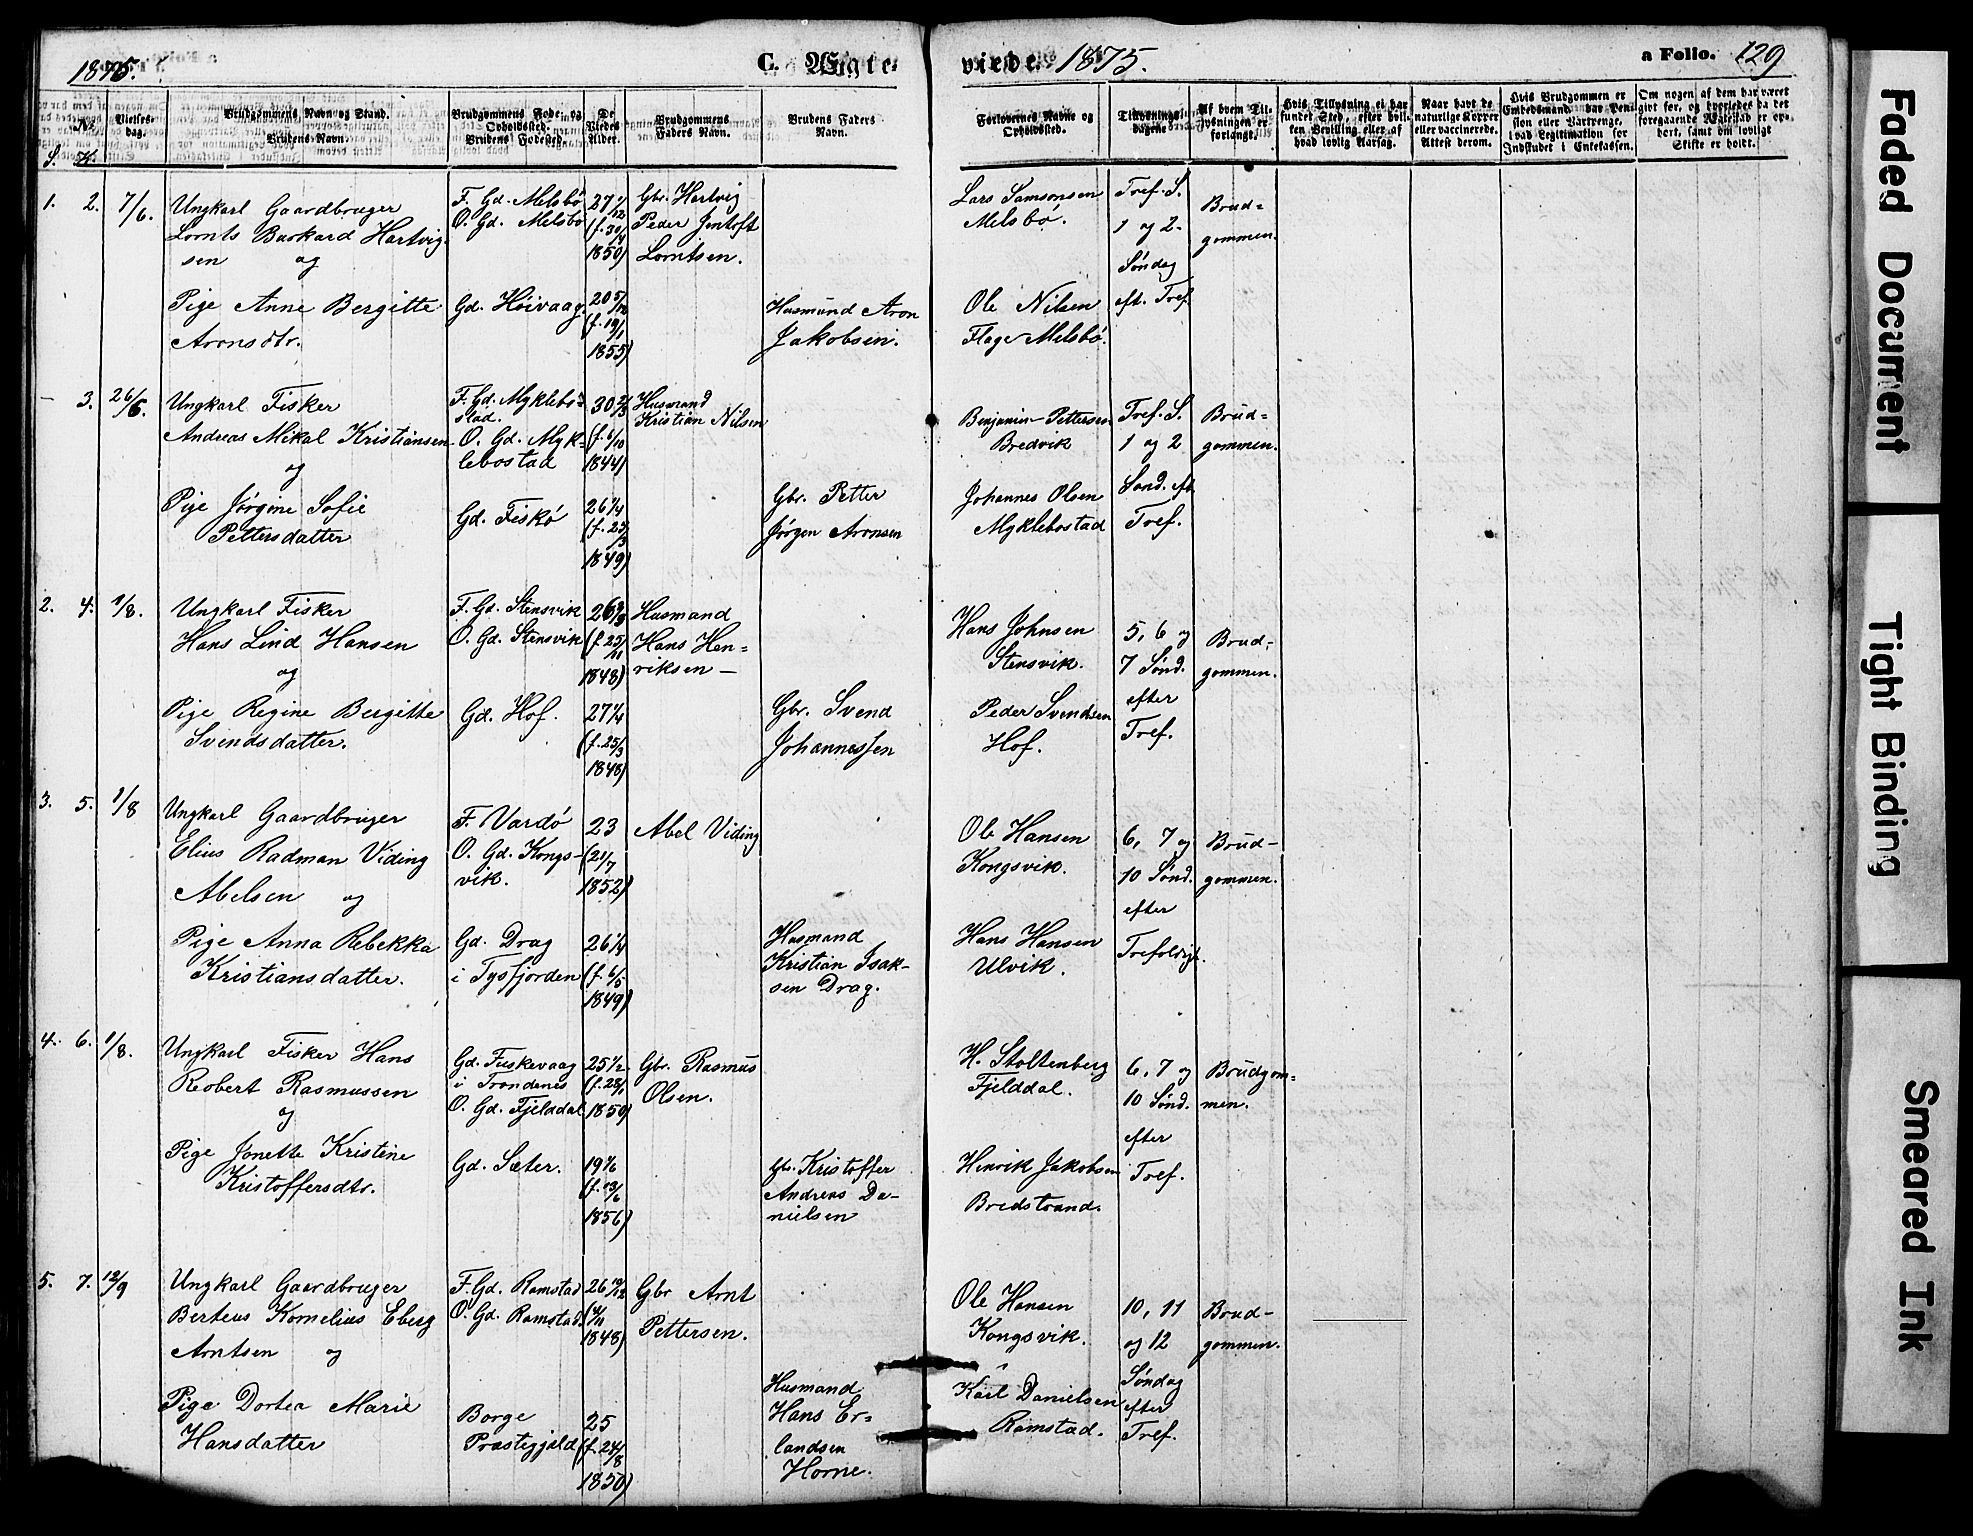 1875.
C. Ægte-
viede. 1875.
a Folio. 129
No.
S. K.
Vielses-
dag.
Brudgommens Navn og Stand.
Brudens Navn.
Brudgommens Føde- og
Opholdssted.
Brudens Fødested.
De
Viedes
Alder.
Brudgommens
Faders Navn.
Brudens Faders
Navn.
Forlovernes Navne og
Opholdssted.
Tillysnings-
dagene.
Af hvem Til-
lysningen er
forlangt.
Hvis Tillysning ei har
fundet Sted, efter hvil-
ken Bevilling eller af
hvad lovlig Aarsag.
Naar havt de
naturlige Kopper
eller vaccinerede.
Attest derom.
Hvis Brudgommen er
Embedsmand, har Pen-
sion eller Vartpenge,
hvad Legitimation for
Indskudet i Enkekassen.
Om nogen af dem har været
gift før, og hvorledes da det
foregaaende Ægteskab er op-
hørt, samt om lovligt
Skifte er holdt.
1. 2. 7/6.
Ungkarl Gaardbruger
Lornts Burkard Hartvig-
sen og
F. Gd. Melsbø
O. Gd. Melsbø
27 1/12
(f. 30/4
1850)
Gbr. Hartvig
Peder Jentoft
Lorntsen.
Lars Samsonsen
Melsbø.
Tref. S.
1 og 2-
Søndag
eft. Tref.
Brud-
gommen.
Pige Anne Bergitte
Aronsdtr.
Gd. Høivaag.
20 5/12
(f. 19/1
1855)
Husmand Aron
Jakobsen.
Ole Nilsen
Flage Melsbø.
- 3. 26/6.
Ungkarl Fisker
Andreas Mikal Kristiansen
og
F. Gd. Myklebo-
stad.
O. Gd. Myk-
lebostad
30 2/3
(f. 6/10
1844)
Husmand
Kristian Nilsen
Benjamin Pettersen
Bredvik
Tref. S.
1 og 2
Sønd. eft.
Tref.
Brud-
gommen.
Pige Jørgine Sofie
Pettersdatter
Gd. Fiskø
26 1/4
(f. 23/3
1849)
Gbr. Petter
Jørgen Aronsen
Johannes Olsen
Myklebostad
2. 4. 1/8.
Ungkarl Fisker
Hans Lind Hansen
og
F. Gd. Stensvik
O. Gd. Stensvik
26 2/3
(f. 25/11
1848)
Husmand
Hans Hen-
riksen -
Hans Johnsen
Stensvik.
5, 6 og
7 Sønd.
efter
Tref.
Brud-
gommen.
Pige Regine Bergitte
Svendsdatter.
Gd. Hof.
27 1/4
(f. 25/3
1848)
Gbr. Svend
Johannessen
Peder Svendsen
Hof.
3. 5. 1/8
Ungkarl Gaardbruger
Elius Radman Viding
Abelsen og
F. Vardø
O. Gd. Kongs-
vik.
23
(21/7
1852)
Abel Viding
Ole Hansen
Kongsvik.
6, 7 og
10 Sønd.
efter
Trefoldigh.
Brud-
gommen.
Pige Anna Rebekka
Kristiansdatter.
Gd. Drag
i Tysfjorden
26 1/4
(f. 6/5
1849)
Husmand
Kristian Isak-
sen Drag.
Hans Hansen
Ulvik.
4. 6. 1/8.
Ungkarl Fisker Hans
Reobert Rasmussen
og
Gd. Fuskevaag
i Trondenes
O. Gd. Fjelddal
25 1/2
(f. 28/1
1850)
Gbr. Rasmus
Olsen.
H. Stoltenberg
Fjelddal.
6, 7 og
10 Sønd.
efter
Tref.
Brudgom-
men.
Pige Jonette Kristine
Kristoffersdtr.
Gd. Sæter.
19 1/6
(f. 13/6
1856)
Gbr. Kristoffer
Andreas Da-
nielsen
Henrik Jakobsen
Bredstrand.
5. 7. 12/9
Ungkarl Gaardbruger
Berteus Kornelius Eberg
Arntsen og
F. Gd. Ramstad
O. Gd. Ramstad.
26 10/12
1848)
Gbr Arnt
Pettersen.
Ole Hansen
Kongsvik.
10, 11
og 12
Søndag
efter
Tref.
Brud-
gommen.
Pige Dortea Marie
Hansdatter
Borge
Præstegjæld
25
(f. 24/8
1850)
Husmand
Hans Er-
landsen
Horne.
Karl Danielsen
Ramstad.
Faded Document
Tight Binding
Smeared Ink